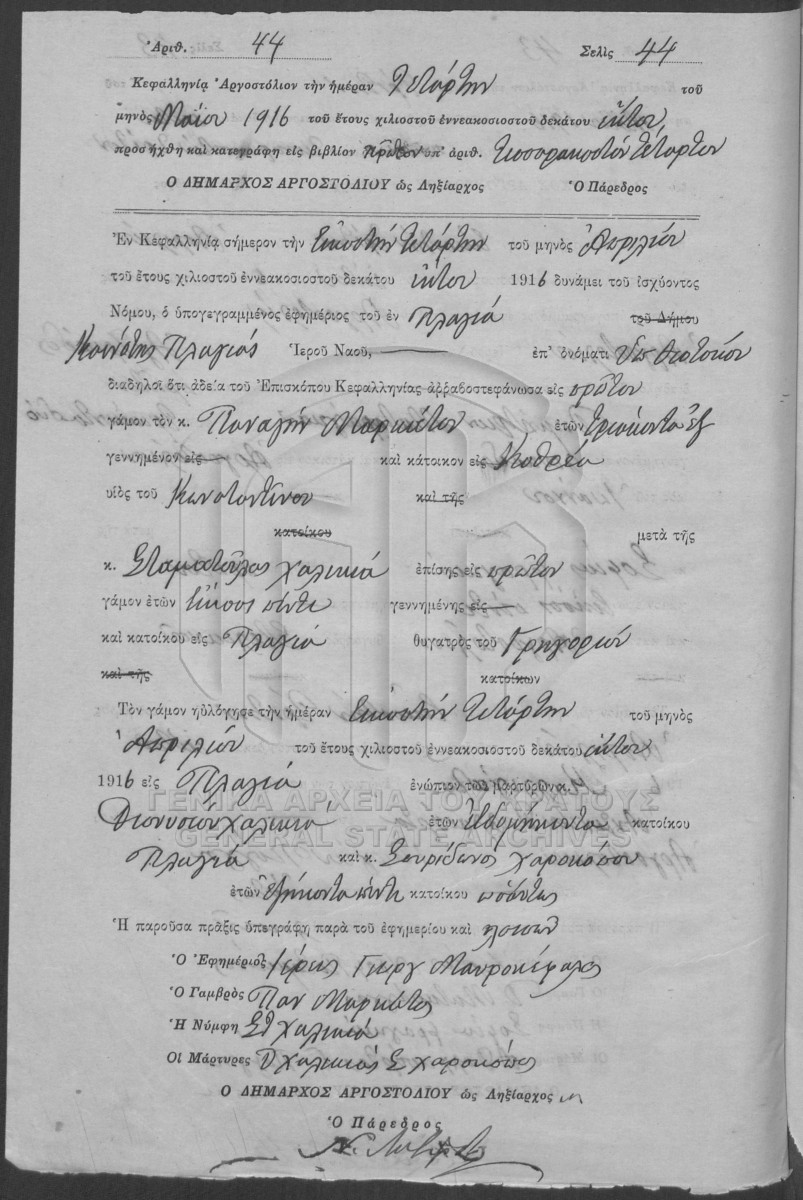 Ἀριθ. 44 Σελὶς 44
Κεφαλληνίᾳ Ἀργοστόλιον τὴν ἡμέραν Τετάρτην τοῦ
μηνὸς Μαΐου 1916 τοῦ ἔτους χιλιοστοῦ ἐννεακοσιοστοῦ δεκάτου ἕκτου
προσήχθη καὶ κατεγράφη εἰς βιβλίον πρῶτον ὑπ' ἀριθ. τεσσαρακοστὸν τέταρτον
Ο ΔΗΜΑΡΧΟΣ ΑΡΓΟΣΤΟΛΙΟΥ ὡς Ληξίαρχος Ὁ Πάρεδρος
Ἐν Κεφαλληνίᾳ σήμερον τὴν Εἰκοστὴν τετάρτην τοῦ μηνὸς Ἀπριλίου
τοῦ ἔτους χιλιοστοῦ ἐννεακοσιοστοῦ δεκάτου ἕκτου 1916 δυνάμει τοῦ ἰσχύοντος
Νόμου, ὁ ὑπογεγραμμένος ἐφημέριος τοῦ ἐν Πλαγιᾷ τοῦ Δήμου
Κοινότης Πλαγιᾶς Ἱεροῦ Ναοῦ, ἐπ' ὀνόματι Ὑπ Θεοτόκου
διαδηλοῖ ὅτι ἀδείᾳ τοῦ Ἐπισκόπου Κεφαλληνίας ἀρραβοστεφάνωσα εἰς πρῶτον
γάμον τὸν κ. Παναγῆν Μαρκάτον ἐτῶν τριάκοντα ἓξ
γεννημένον εἰς καὶ κάτοικον εἰς Κοθρέα
υἱὸς τοῦ Κωνσταντίνου καὶ τῆς
κατοίκου μετὰ τῆς
κ. Σταματούλας Χαλικιᾶ ἐπίσης εἰς πρῶτον
γάμον ἐτῶν εἴκοσι πέντε γεννημένης εἰς
καὶ κατοίκου εἰς Πλαγιά θυγατρὸς τοῦ Γρηγορίου
καὶ τῆς κατοίκων
Τὸν γάμον ηὐλόγησε τὴν ἡμέραν Εἰκοστὴν τετάρτην τοῦ μηνὸς
Ἀπριλίου τοῦ ἔτους χιλιοστοῦ ἐννεακοσιοστοῦ δεκάτου ἕκτου
1916 εἰς Πλαγιά ἐνώπιον τῶν μαρτύρων κ.
ΓΕΝΙΚΑ ΑΡΧΕΙΑ ΤΟΥ ΚΡΑΤΟΥΣ
Διονυσίου Χαλικιᾶ ἐτῶν ἑβδομήκοντα κατοίκου
GENERAL STATE ARCHIVES
Πλαγιά καὶ κ. Σπυρίδωνος Χαροκόπου
ἐτῶν ἑξήκοντα πέντε κατοίκου ὡσαύτως
Ἡ παροῦσα πρᾶξις ὑπεγράφη παρὰ τοῦ ἐφημερίου καὶ λοιπῶν
Ὁ Ἐφημέριος Ἱερεὺς Γεωργ Μαυροκέφαλος
Ὁ Γαμβρὸς Παν Μαρκάτος
Ἡ Νύμφη Στ Χαλικιᾶ
Οἱ Μάρτυρες Δ Χαλικιᾶς Σ Χαροκόπος
Ο ΔΗΜΑΡΧΟΣ ΑΡΓΟΣΤΟΛΙΟΥ ὡς Ληξίαρχος
Ὁ Πάρεδρος